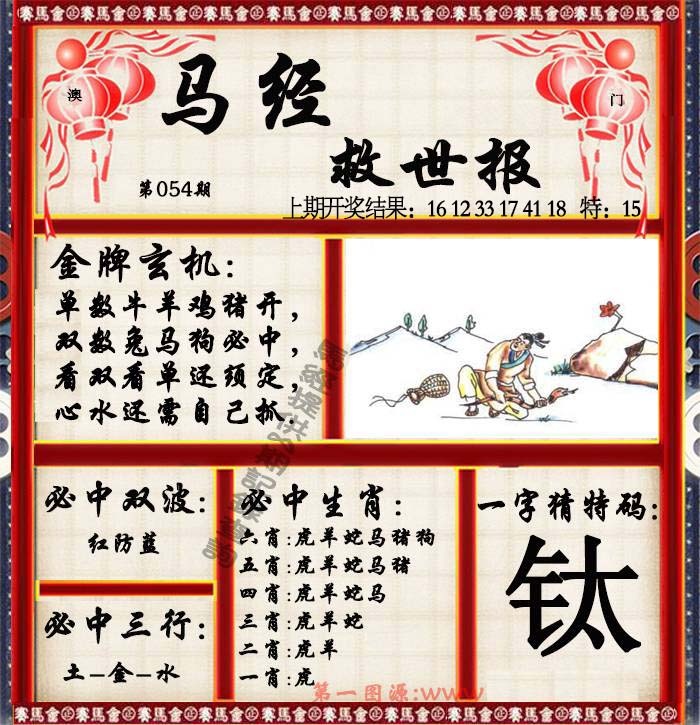 賽馬會 賽馬會 賽馬會 賽馬會 賽馬會 賽馬會 賽馬會 賽馬會
澳
门
马经
救世报
第054期
上期开奖结果：16 12 33 17 41 18 特：15
金牌玄机：
单数牛羊鸡猪开，
双数兔马狗必中，
看双看单还须定，
心水还需自己抓.
必中双波：
红防蓝
必中三行：
土-金-水
必中生肖：
六肖:虎羊蛇马猪狗
五肖:虎羊蛇马猪
四肖:虎羊蛇马
三肖:虎羊蛇
二肖:虎羊
一肖:虎
一字猜特码：
钛
第一图源:www